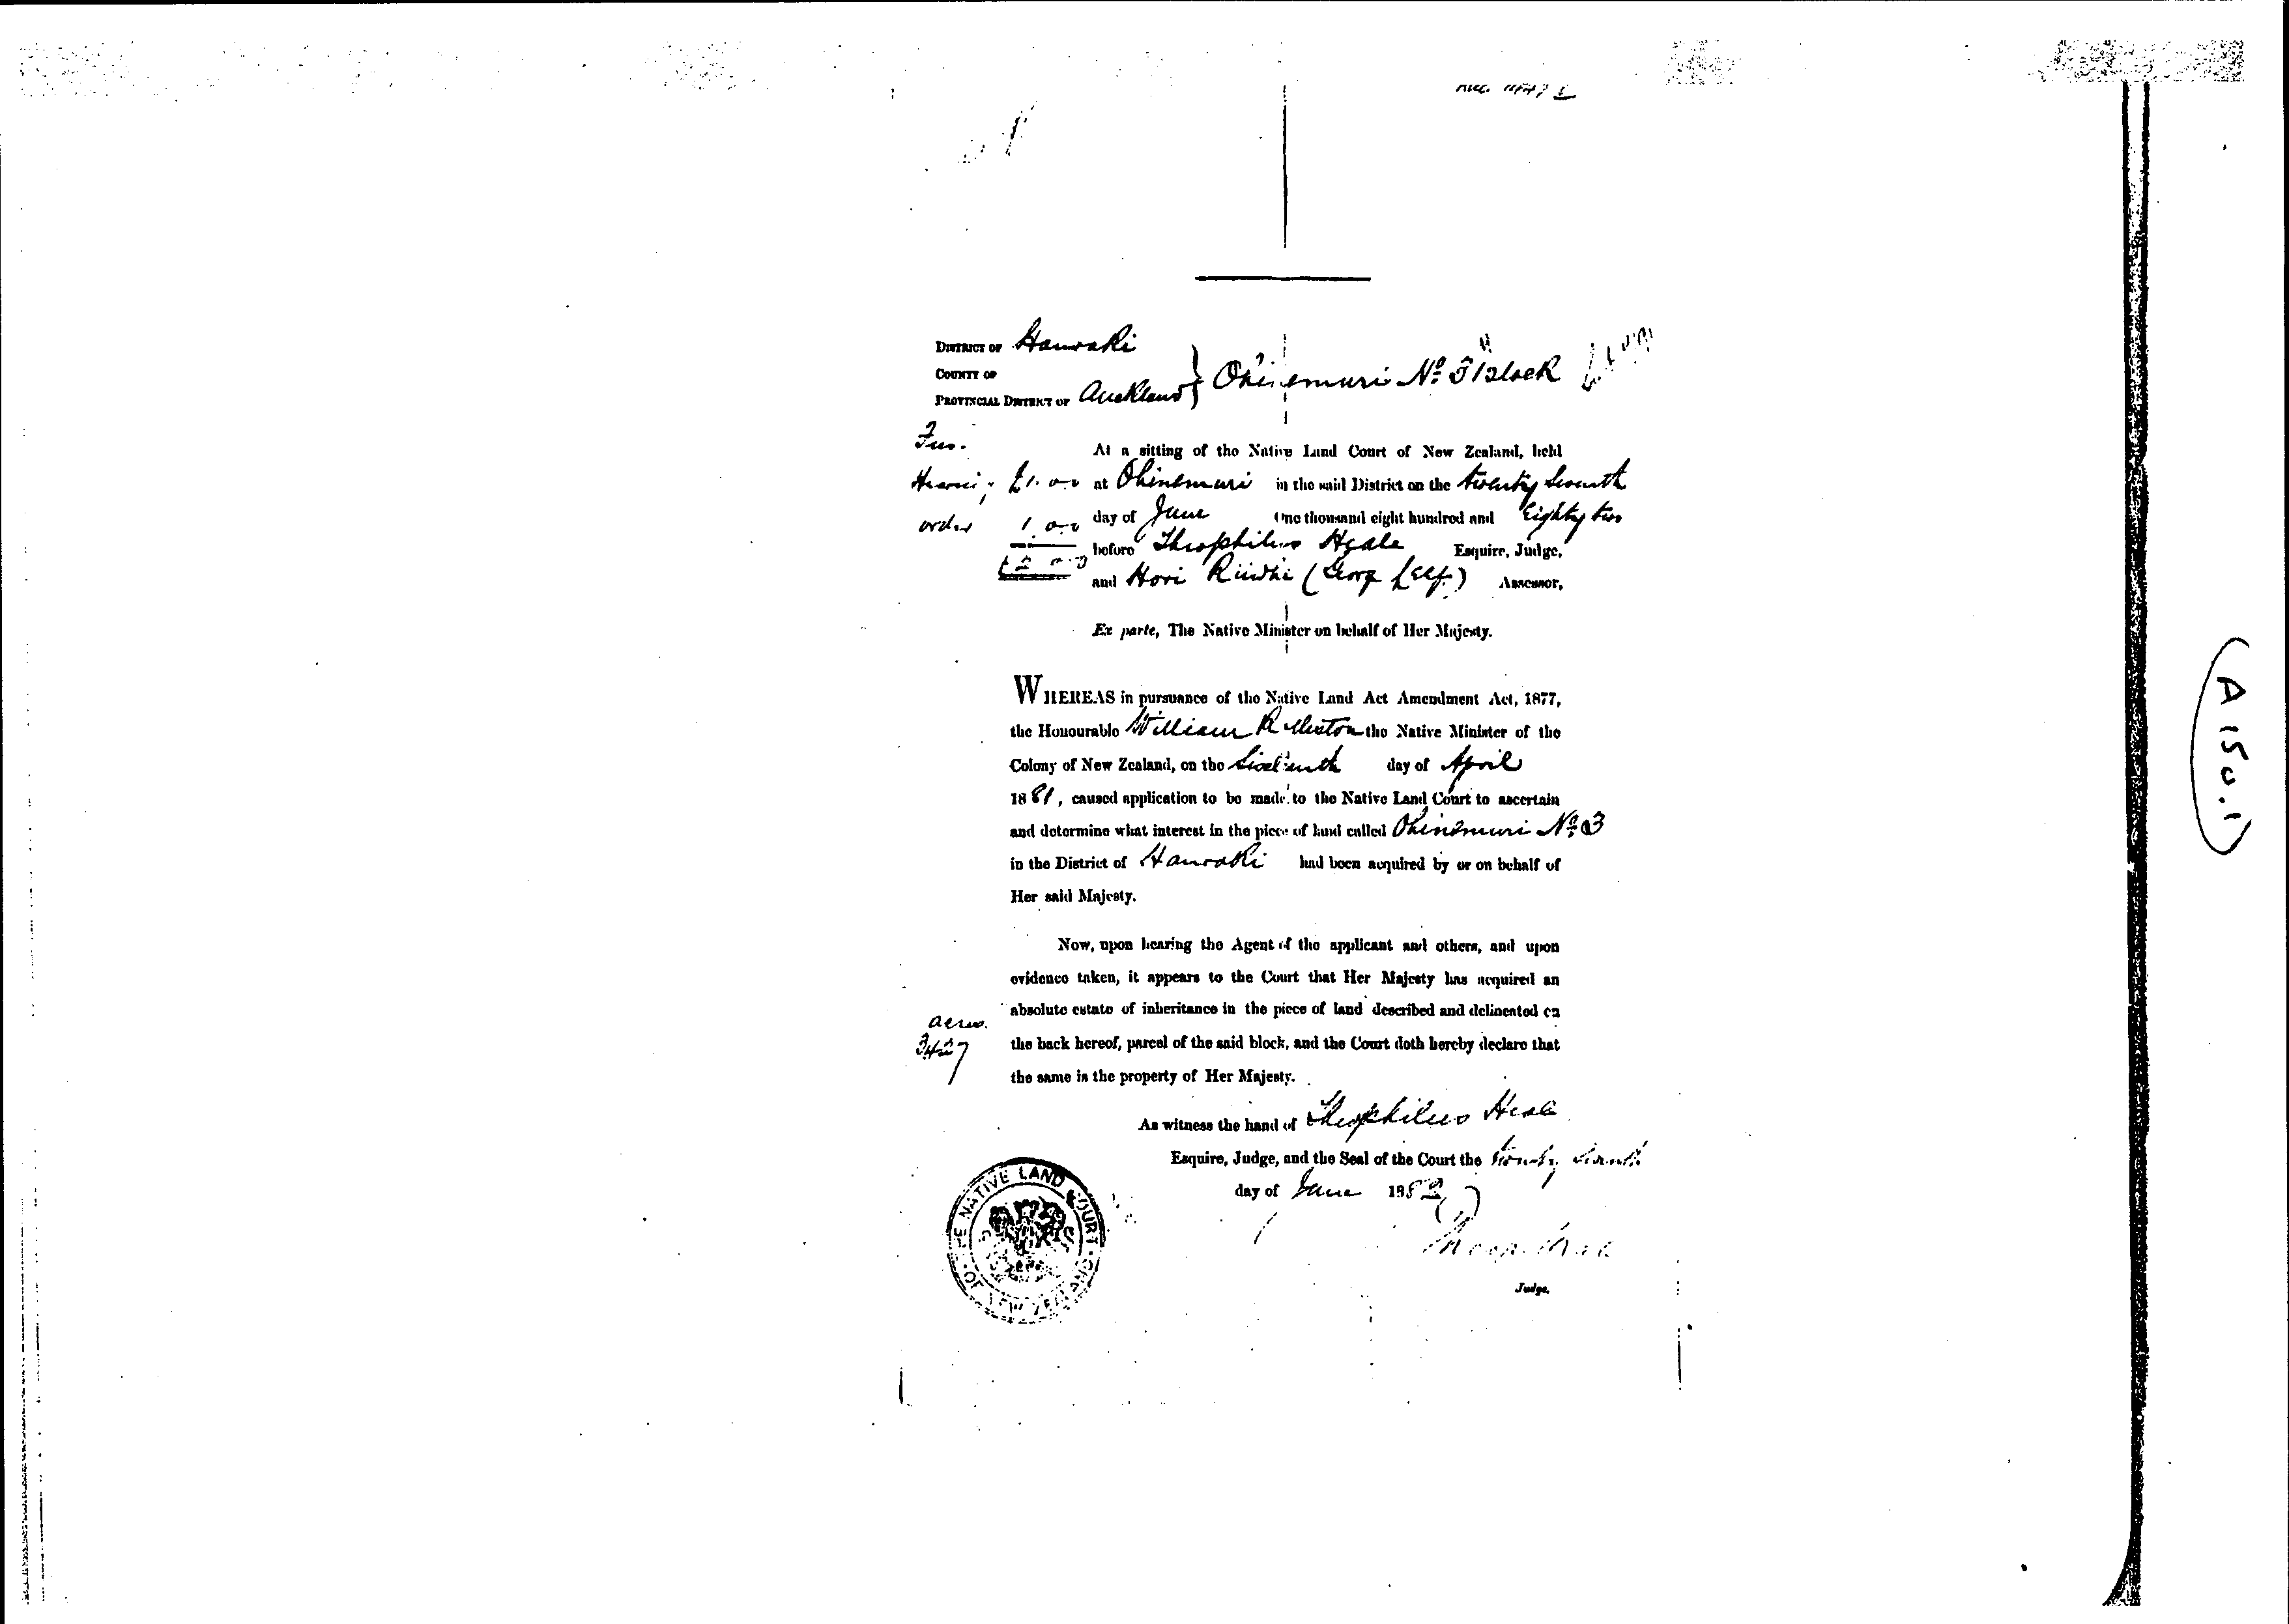 DISTRICT OF Hauraki
COUNTY OF
PROVINCIAL DISTRICT OF Auckland } Ohinemuri No. 3 Block
At a sitting of the Native Land Court of New Zealand, held
£1.0.0 at Ohinemuri in the said District on the twenty seventh
order 1.0.0 day of June One thousand eight hundred and Eighty two
before Theophilus Heale Esquire, Judge,
and Hori Assessor,
Ex parte, The Native Minister on behalf of Her Majesty.
WHEREAS in pursuance of the Native Land Act Amendment Act, 1877,
the Honourable William Rolleston the Native Minister of the
Colony of New Zealand, on the Sixteenth day of April
1881, caused application to be made to the Native Land Court to ascertain
and determine what interest in the piece of land called Ohinemuri No. 3
in the District of Hauraki had been acquired by or on behalf of
Her said Majesty.
Now, upon hearing the Agent of the applicant and others, and upon
evidence taken, it appears to the Court that Her Majesty has acquired an
absolute estate of inheritance in the piece of land described and delineated on
acres.
the back hereof, parcel of the said block, and the Court doth hereby declare that
the same is the property of Her Majesty.
As witness the hand of Theophilus Heale
Esquire, Judge, and the Seal of the Court the twenty seventh
day of June 1882
Judge.
OF THE NATIVE LAND COURT OF NEW ZEALAND
(A150.1)